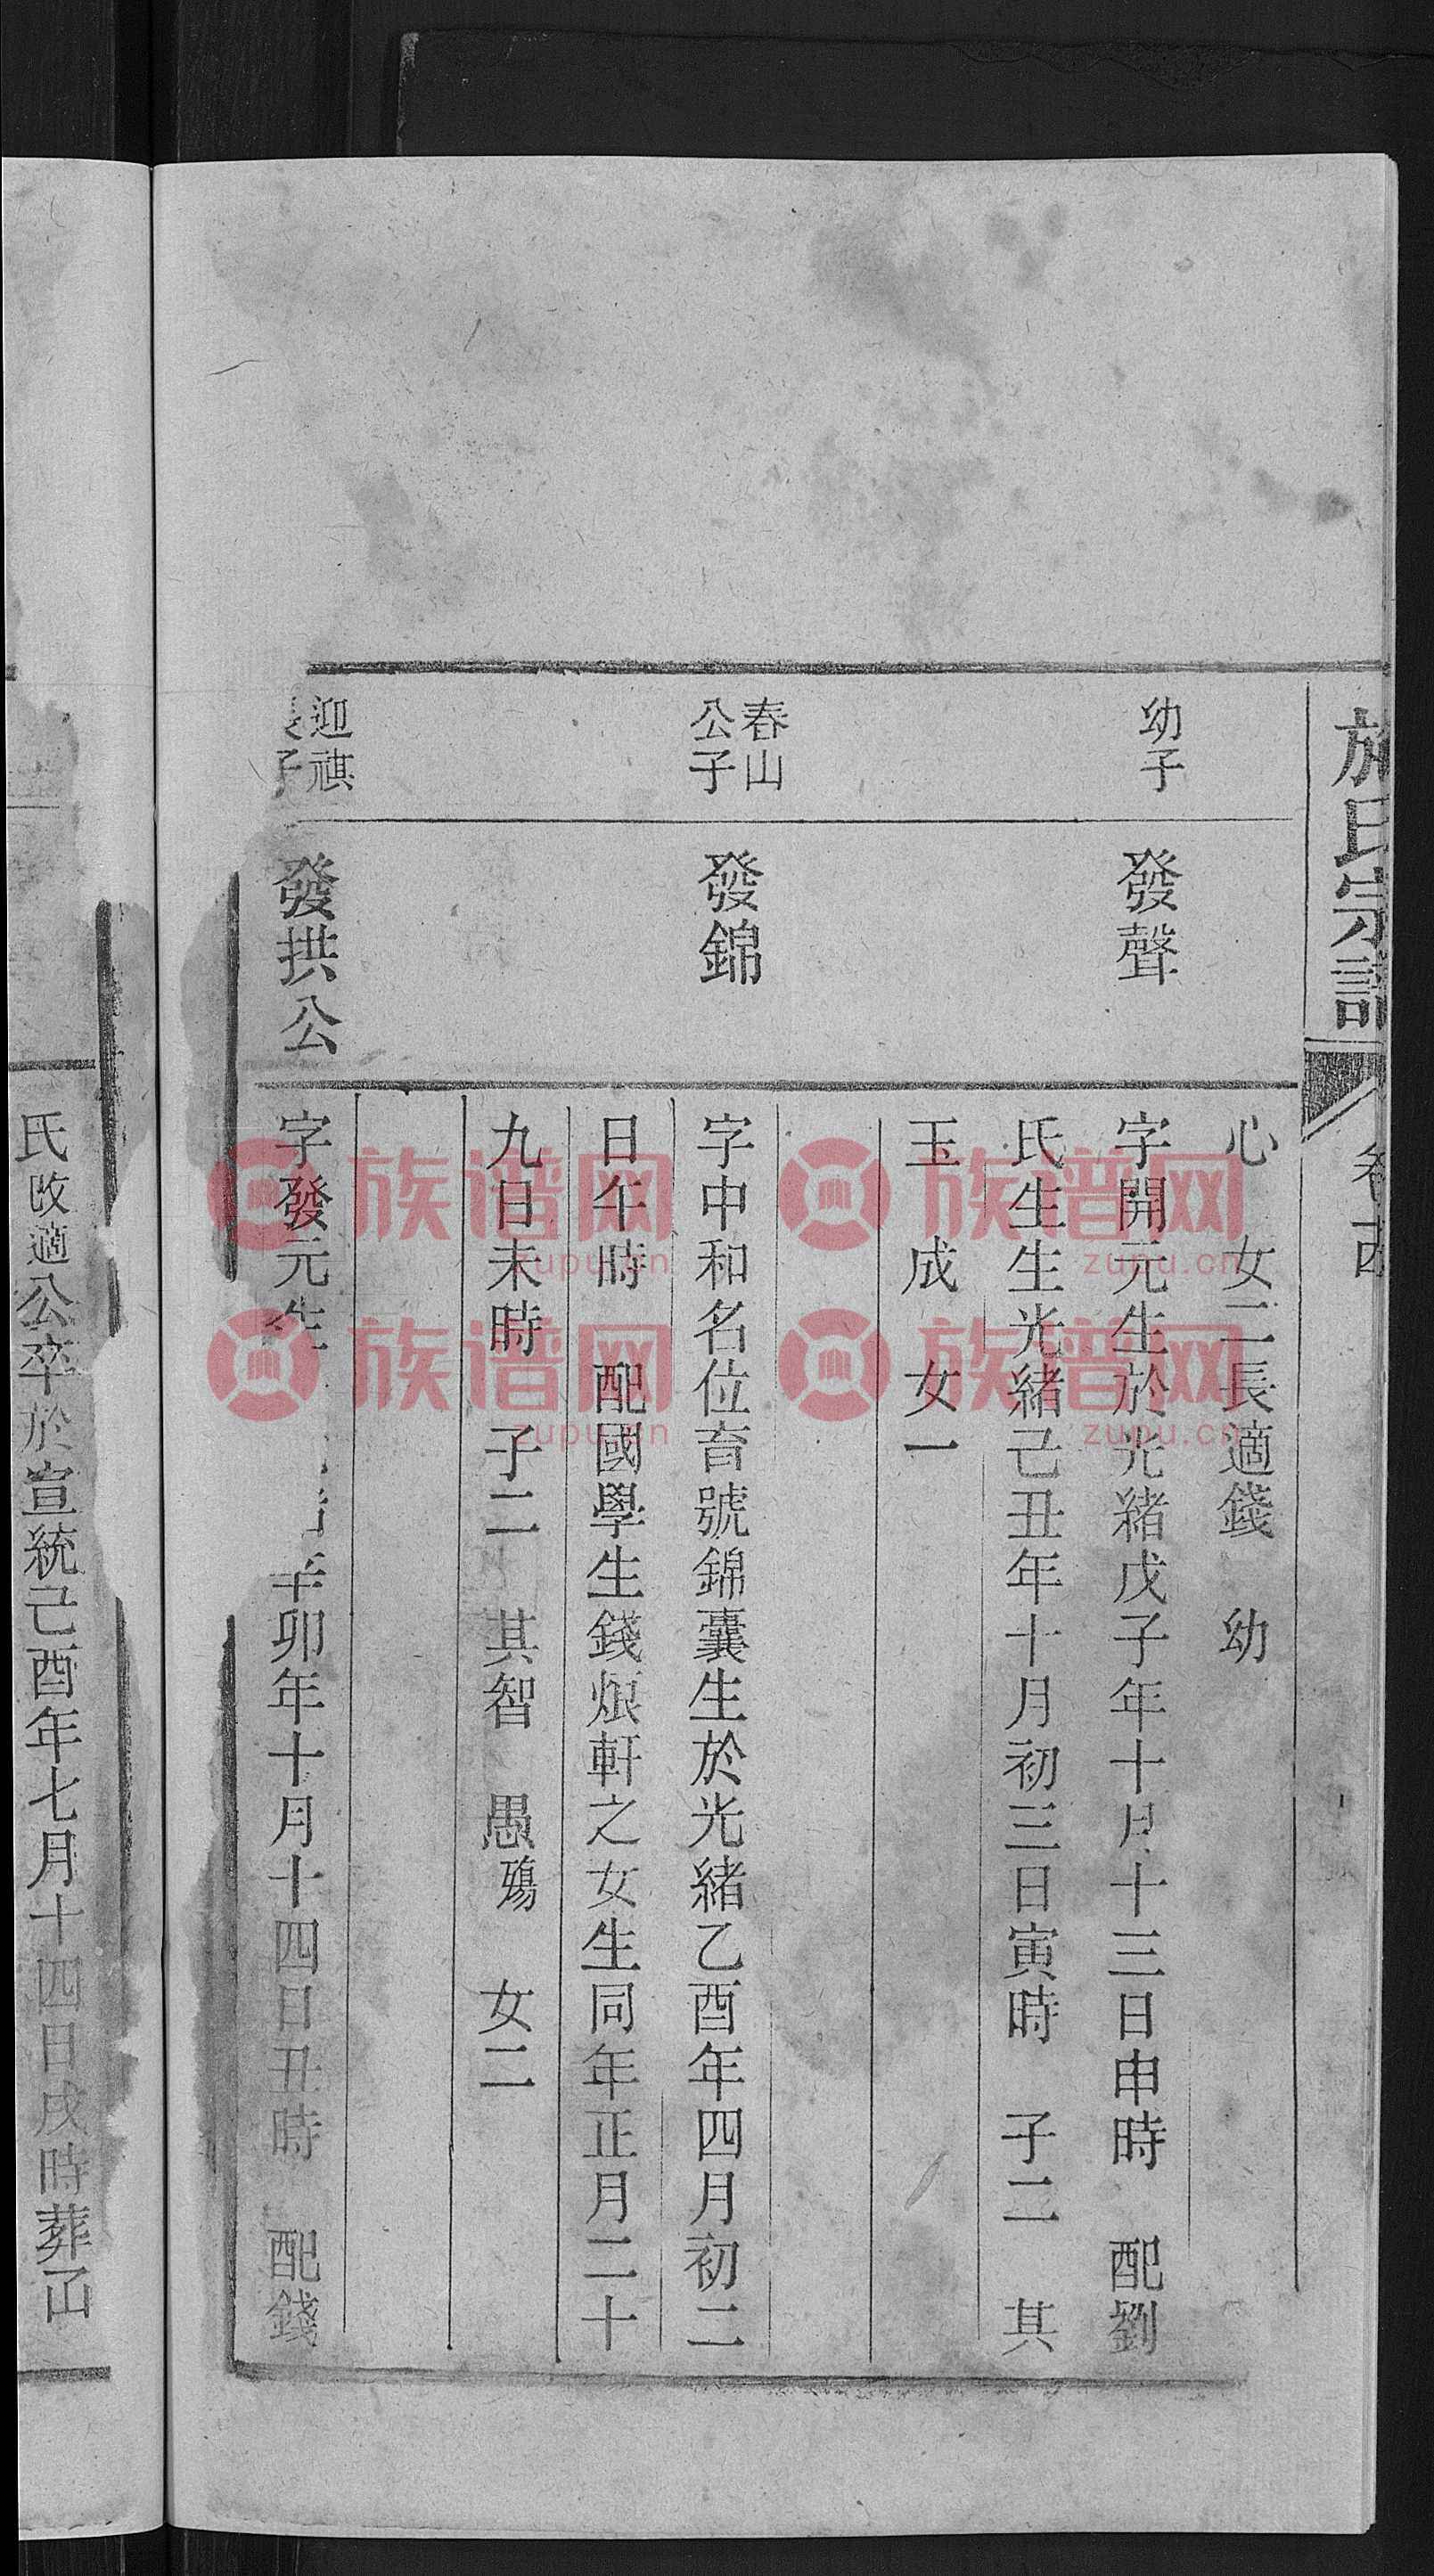 施氏宗譜
卷
心 女二長適錢 幼
幼子
發聲
字開元生於光緒戊子年十月十三日申時 配劉
氏生生光緒己丑年十月初三日寅時 子二 其
玉 成 女一
春山
公子
發錦
字中和名位育號錦囊生於光緒乙酉年四月初二
日午時 配國學生錢煨軒之女生同年正月二十
九日未時 子二 其智 愚殤 女二
迎祺
長子
發拱公
字發元生
辛卯年十月十四日丑時 配錢
氏改適公卒於宣統己酉年七月十四日戌時葬
族谱网
zupu.cn
族谱网
zupu.cn
族谱网
zupu.cn
族谱网
zupu.cn